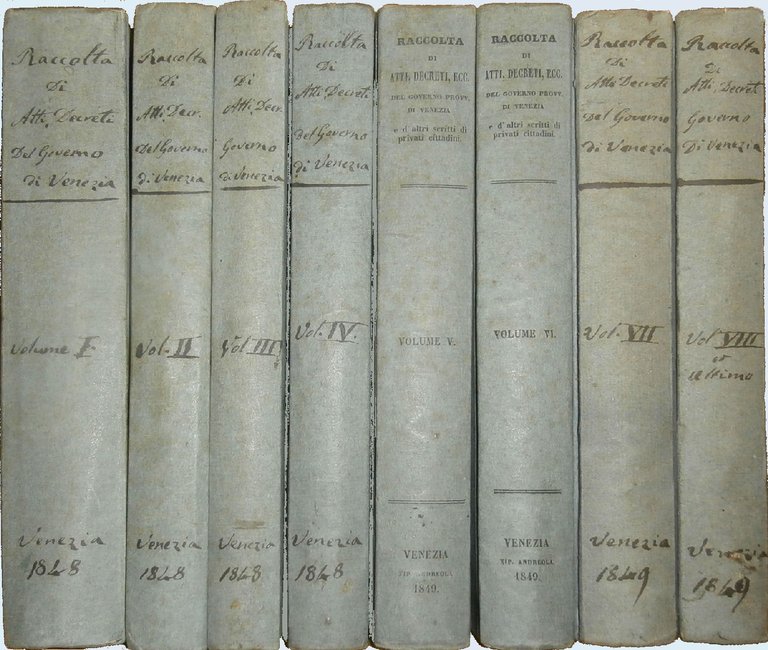 Raccolta
Di
Atti, Decreti
Del Governo
di Venezia
Volume I
Venezia
1848
Raccolta
Di
Atti, Decr.
Del Governo
di Venezia
Vol. II
Venezia
1848
Raccolta
Di
Atti, Decr.
Governo
di Venezia
Vol III
Venezia
1848
Raccolta
Di
Atti, Decreti
del Governo
di Venezia
Vol. IV.
Venezia
1848
RACCOLTA
DI
ATTI, DECRETI, ECC.
DEL GOVERNO PROVV.
DI VENEZIA
e d'altri scritti di
privati cittadini.
VOLUME V.
VENEZIA
TIP. ANDREOLA
1849.
RACCOLTA
DI
ATTI, DECRETI, ECC.
DEL GOVERNO PROVV.
DI VENEZIA
e d'altri scritti di
privati cittadini.
VOLUME VI.
VENEZIA
TIP. ANDREOLA
1849.
Raccolta
Di
Atti Decreti
Del Governo
di Venezia
Vol. VII
Venezia
1849
Raccolta
Di
Atti, Decreti
Governo
Di Venezia
Vol VIII
et
ultimo
Venezia
1849